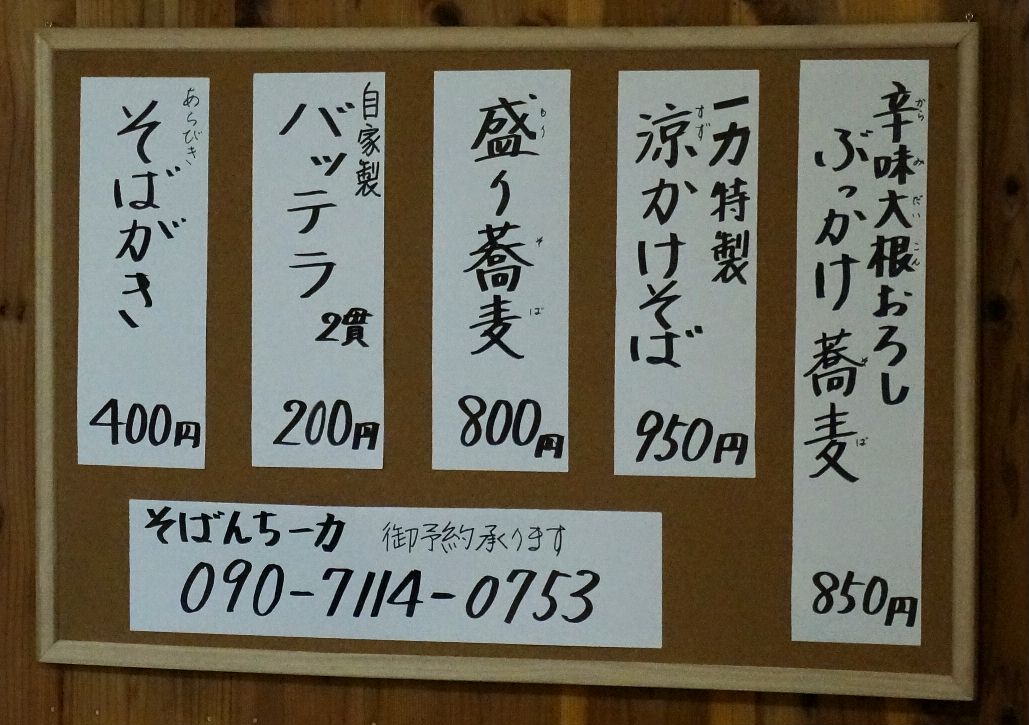 辛味大根おろし
からみだいこん
ぶっかけ蕎麦
そば
850円
一力特製
涼かけそば
すず
950円
盛り蕎麦
もりそば
800円
自家製
バッテラ
2貫
200円
あらびき
そばがき
400円
そばんち一力 御予約承ります
090-7114-0753